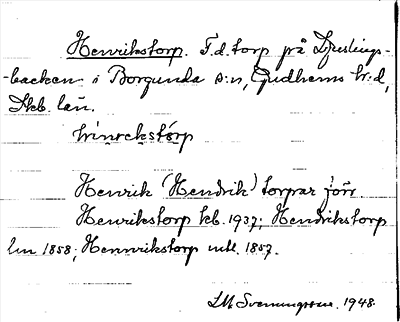 Henrikstorp. F.d. torp på Djuslings-
backen i Borgunda s:n, Gudhems h:d,
Skb. län.
hinrekstórp
Henrik (Hendrik) torpar förr
Henrikstorp kb. 1937; Hendrikstorp
lm 1858; Hennrikstorp utl. 1857.
LM Svenungsson. 1948.